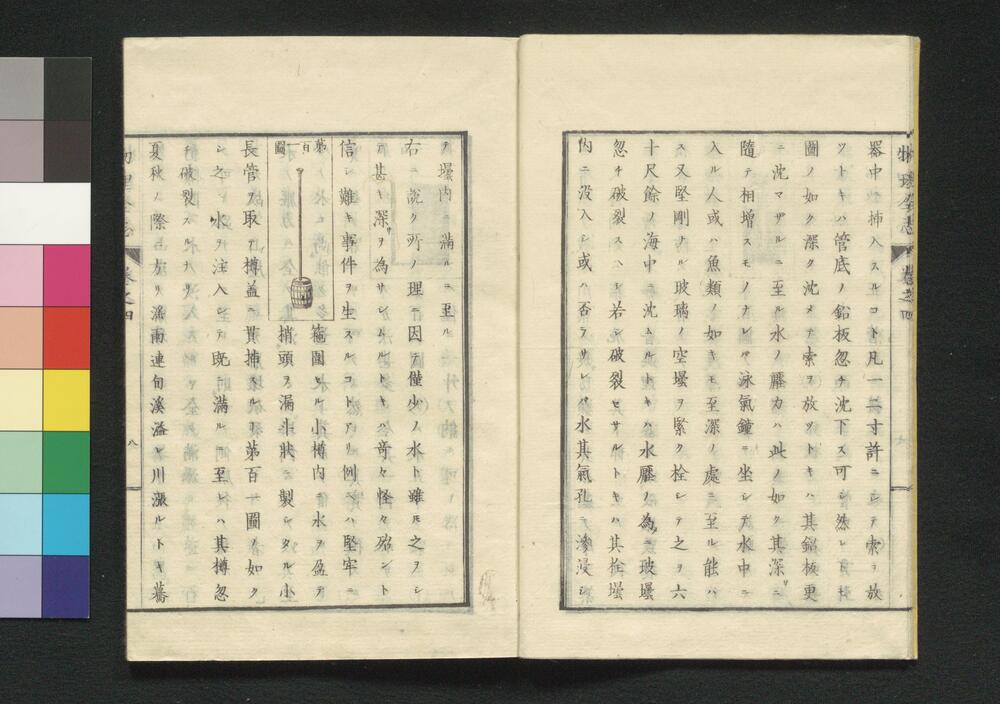 物理全志 卷之四
器中ニ挿入スルコト凡一二寸許ニシテ索ヲ放
ツトキハ管底ノ鉛板忽チ沈下ス可シ然レ𪜈
圖ノ如ク深ク沈メテ索ヲ放ツトキハ其鉛板更
ニ沈マザルニ至ル水ノ壓力ハ此ノ如ク其深サニ
隨テ相増スモノナレバ泳氣鐘ニ坐シテ水中ニ
入ル人或ハ魚類ノ如キモ至深ノ處ニ至ル能ハ
ス又堅剛ナル玻璃ノ空壜ヲ緊ク栓シテ之ヲ六
十尺餘ノ海中ニ沈ムルトキハ水壓ノ為ニ玻壜
忽チ破裂ス、若シ破裂セサルトキハ其栓壜
内ニ沒入シ或ハ否ラサレバ水其氣孔ヨリ滲浸シ
テ壜内ニ滿ルニ至ル
右ニ說ク所ノ理ニ因テ僅少ノ水ト雖𪜈之ヲシ
テ甚キ深サヲ為サシムルトキハ竒々怪々殆ント
信シ難キ事件ヲ生スルコトアリ例之ハ堅牢ニ
第百一圖
箍圍セル小樽内ニ水ヲ盈テ
梢頭ヲ漏斗狀ニ製シタル小
長管ヲ取リ樽蓋ニ貫挿スルコ第百一圖ノ如ク
シ之ニ水ヲ注入シテ既ニ滿ルニ至レハ其樽忽
チ破裂スルナリ
夏秋ノ際
霖雨連旬溪溢レ川漲ルトキ蕃
物理全志 卷之四 八